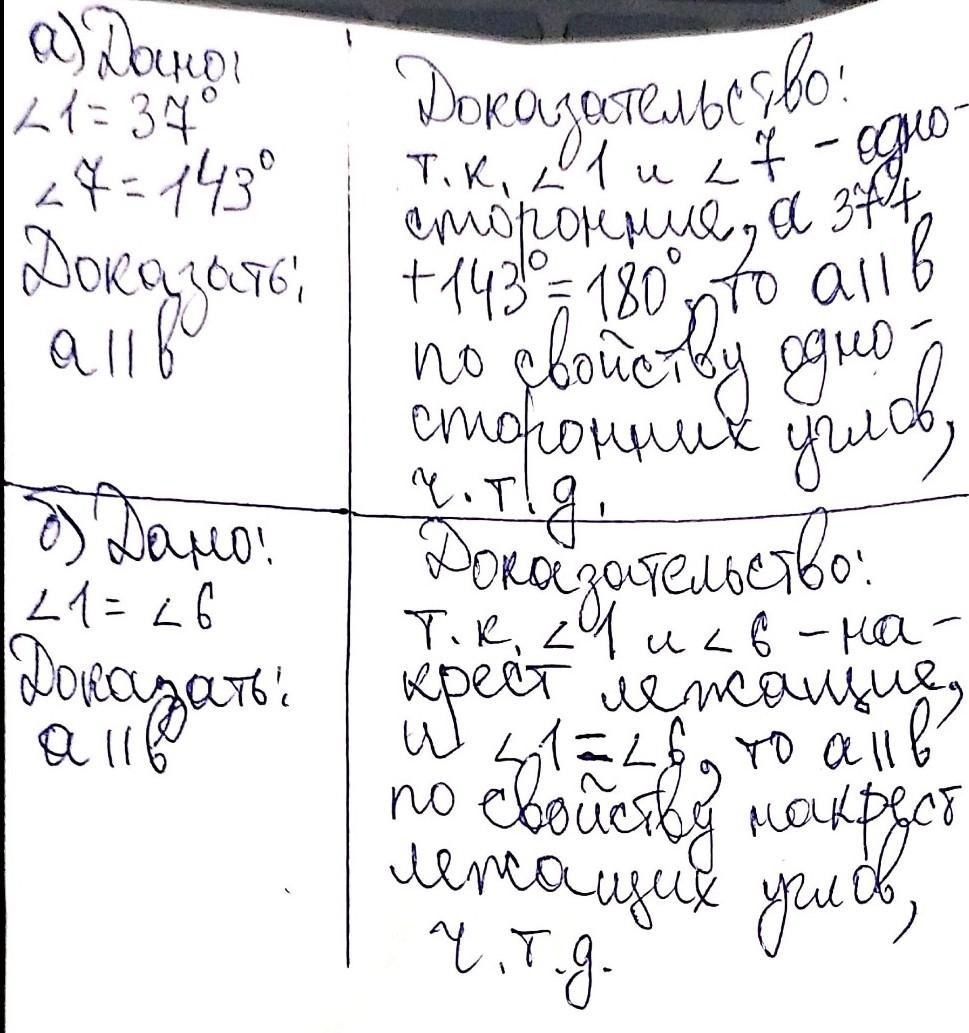 а) Дано:
∠1 = 37°
∠7 = 143°
Доказать:
a || b
Доказательство:
т.к. ∠1 и ∠7 - одно-
сторонние, а 37° +
+ 143° = 180°, то a || b
по свойству одно-
сторонних углов,
ч.т.д.
б) Дано:
∠1 = ∠6
Доказать:
a || b
Доказательство:
т.к. ∠1 и ∠6 - на-
крест лежащие,
и ∠1 = ∠6, то a || b
по свойству накрест
лежащих углов,
ч.т.д.